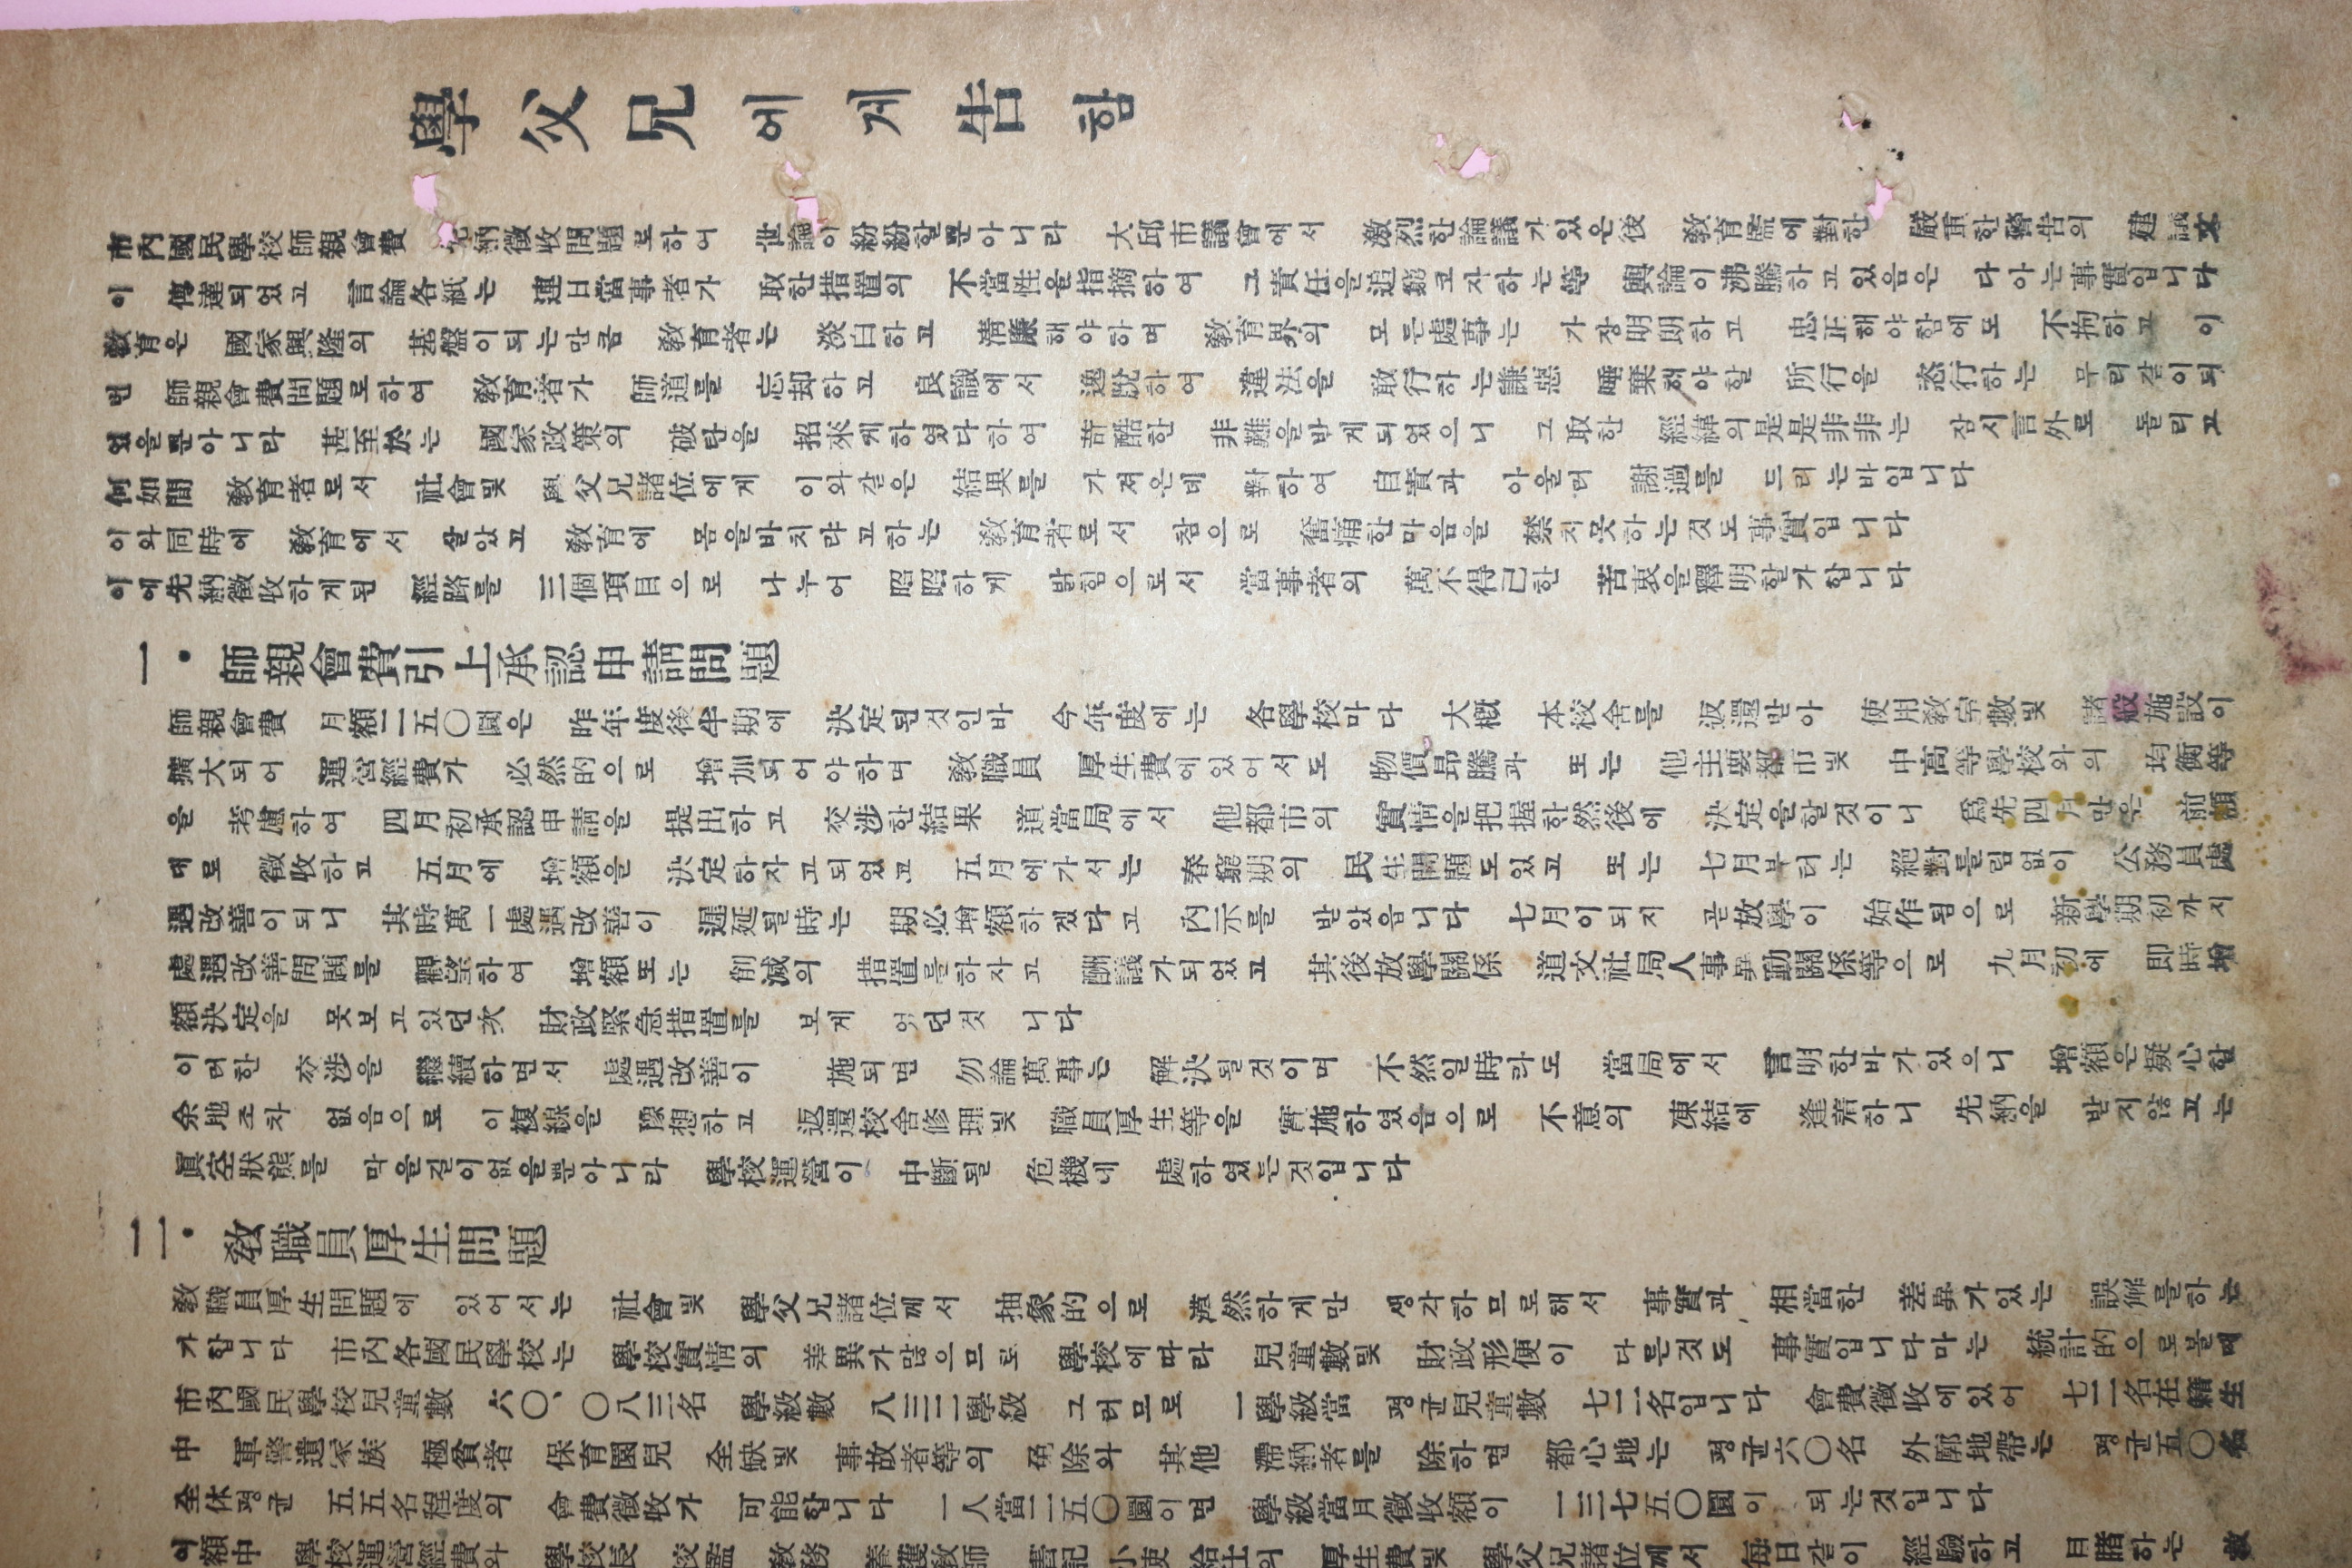 學父兄에게告함
市內國民學校師親會費 先納徵收問題로하여 世論이紛紛할뿐아니라 大邱市議會에서 激烈한論議가있은後 敎育監에對한 嚴重한警告의 建議文
이 傳達되었고 言論各紙는 連日當事者가 取한措置의 不當性을指摘하여 그責任을追窮코자하는等 輿論이沸騰하고있음은 다아는事實입니다
敎育은 國家興隆의 基盤이되는만큼 敎育者는 淡白하고 淸廉해야하며 敎育界의 모든處事는 가장明朗하고 忠正해야함에도 不拘하고 이
번 師親會費問題로하여 敎育者가 師道를 忘却하고 良識에서 逸脫하여 違法을 敢行하는 唾棄해야할 所行을 恣行하는 무리같이되
었을뿐아니라 甚至於는 國家政策의 破탄을 招來케하였다하여 苛酷한 非難을받게되었으니 그取한 經緯의是是非非는 잠시言外로 돌리고
何如間 敎育者로서 社會및 學父兄諸位에게 이와같은 結果를 가져온데 對하여 自責과 아울러 謝過를 드리는바입니다
이와同時에 敎育에서 살았고 敎育에 몸을바치랴고하는 敎育者로서 참으로 奮痛한마음을 禁치못하는것도事實입니다
이에先納徵收하게된 經路를 三個項目으로 나누어 昭昭하게 밝힘으로서 當事者의 萬不得已한 苦衷을釋明할가합니다
一・師親會費引上承認申請問題
師親會費 月額二五〇圜은 昨年度後半期에 決定된것인바 今年度에는 各學校마다 大槪 本校舍를 返還받아 使用敎室數및 諸般施設이
擴大되어 運營經費가 必然的으로 增加되어야하며 敎職員 厚生費에있어서도 物價昻騰과 또는 他主要都市및 中高等學校와의 均衡等
을 考慮하여 四月初承認申請을 提出하고 交涉한結果 道當局에서 他都市의 實情을把握한然後에 決定을할것이니 爲先四月만은 前額
대로 徵收하고 五月에 增額을 決定하자고되었고 五月에가서는 春窮期의 民生問題도있고 또는 七月부터는 絕對틀림없이 公務員處
遇改善이되니 其時萬一處遇改善이 遲延될時는 期必增額하겠다고 內示를 받았읍니다 七月이되자 곧放學이 始作됨으로 新學期初까지
處遇改善問題를 觀望하여 增額또는 削減의 措置를하자고 酬議가되었고 其後放學關係 道文社局人事異動關係等으로 九月初에 即時增
額決定을 못보고있던次 財政緊急措置를 보게 었던것 니다
이러한 交涉을 繼續하면서 處遇改善이 施되면 勿論萬事는 解決될것이며 不然일時라도 當局에서 言明한바가있으니 增額은疑心할
余地조차 없음으로 이複線을 豫想하고 返還校舍修理및 職員厚生等을 實施하였음으로 不意의 凍結에 逢着하니 先納을 받지않고는
眞空狀態를 막을길이없을뿐아니라 學校運營이 中斷될 危機네 處하였든것입니다
二・敎職員厚生問題
敎職員厚生問題에 있어서는 社會및 學父兄諸位께서 抽象的으로 漠然하게만 생각하므로해서 事實과 相當한 差異가있는 誤解를하는
가합니다 市內各國民學校는 學校實情의 差異가많으므로 學校에따라 兒童數및 財政形便이 다른것도 事實입니다마는 統計的으로볼때
市內國民學校兒童數 六〇、〇八三名 學級數 八三二學級 그러므로 一學級當 평균兒童數 七二名입니다 會費徵收에있어 七二名在籍生
中 軍警遺家族 極貧者 保育園兒 全缺및 事故者等의 免除와 其他 滯納者를 除하면 都心地는 평균六〇名 外廓地帶는 평균五〇名
全休평균 五五名程度의 會費徵收가 可能합니다 一人當二五〇圜이면 學級當月徵收額이 一三七五〇圜이 되는것입니다
이額中 學校運營經費와 學校長 校監 敎務 養護敎師 書記 小使 給仕의 厚生費및 學父兄諸位께서 每日같이 經驗하고 目睹하는 敎